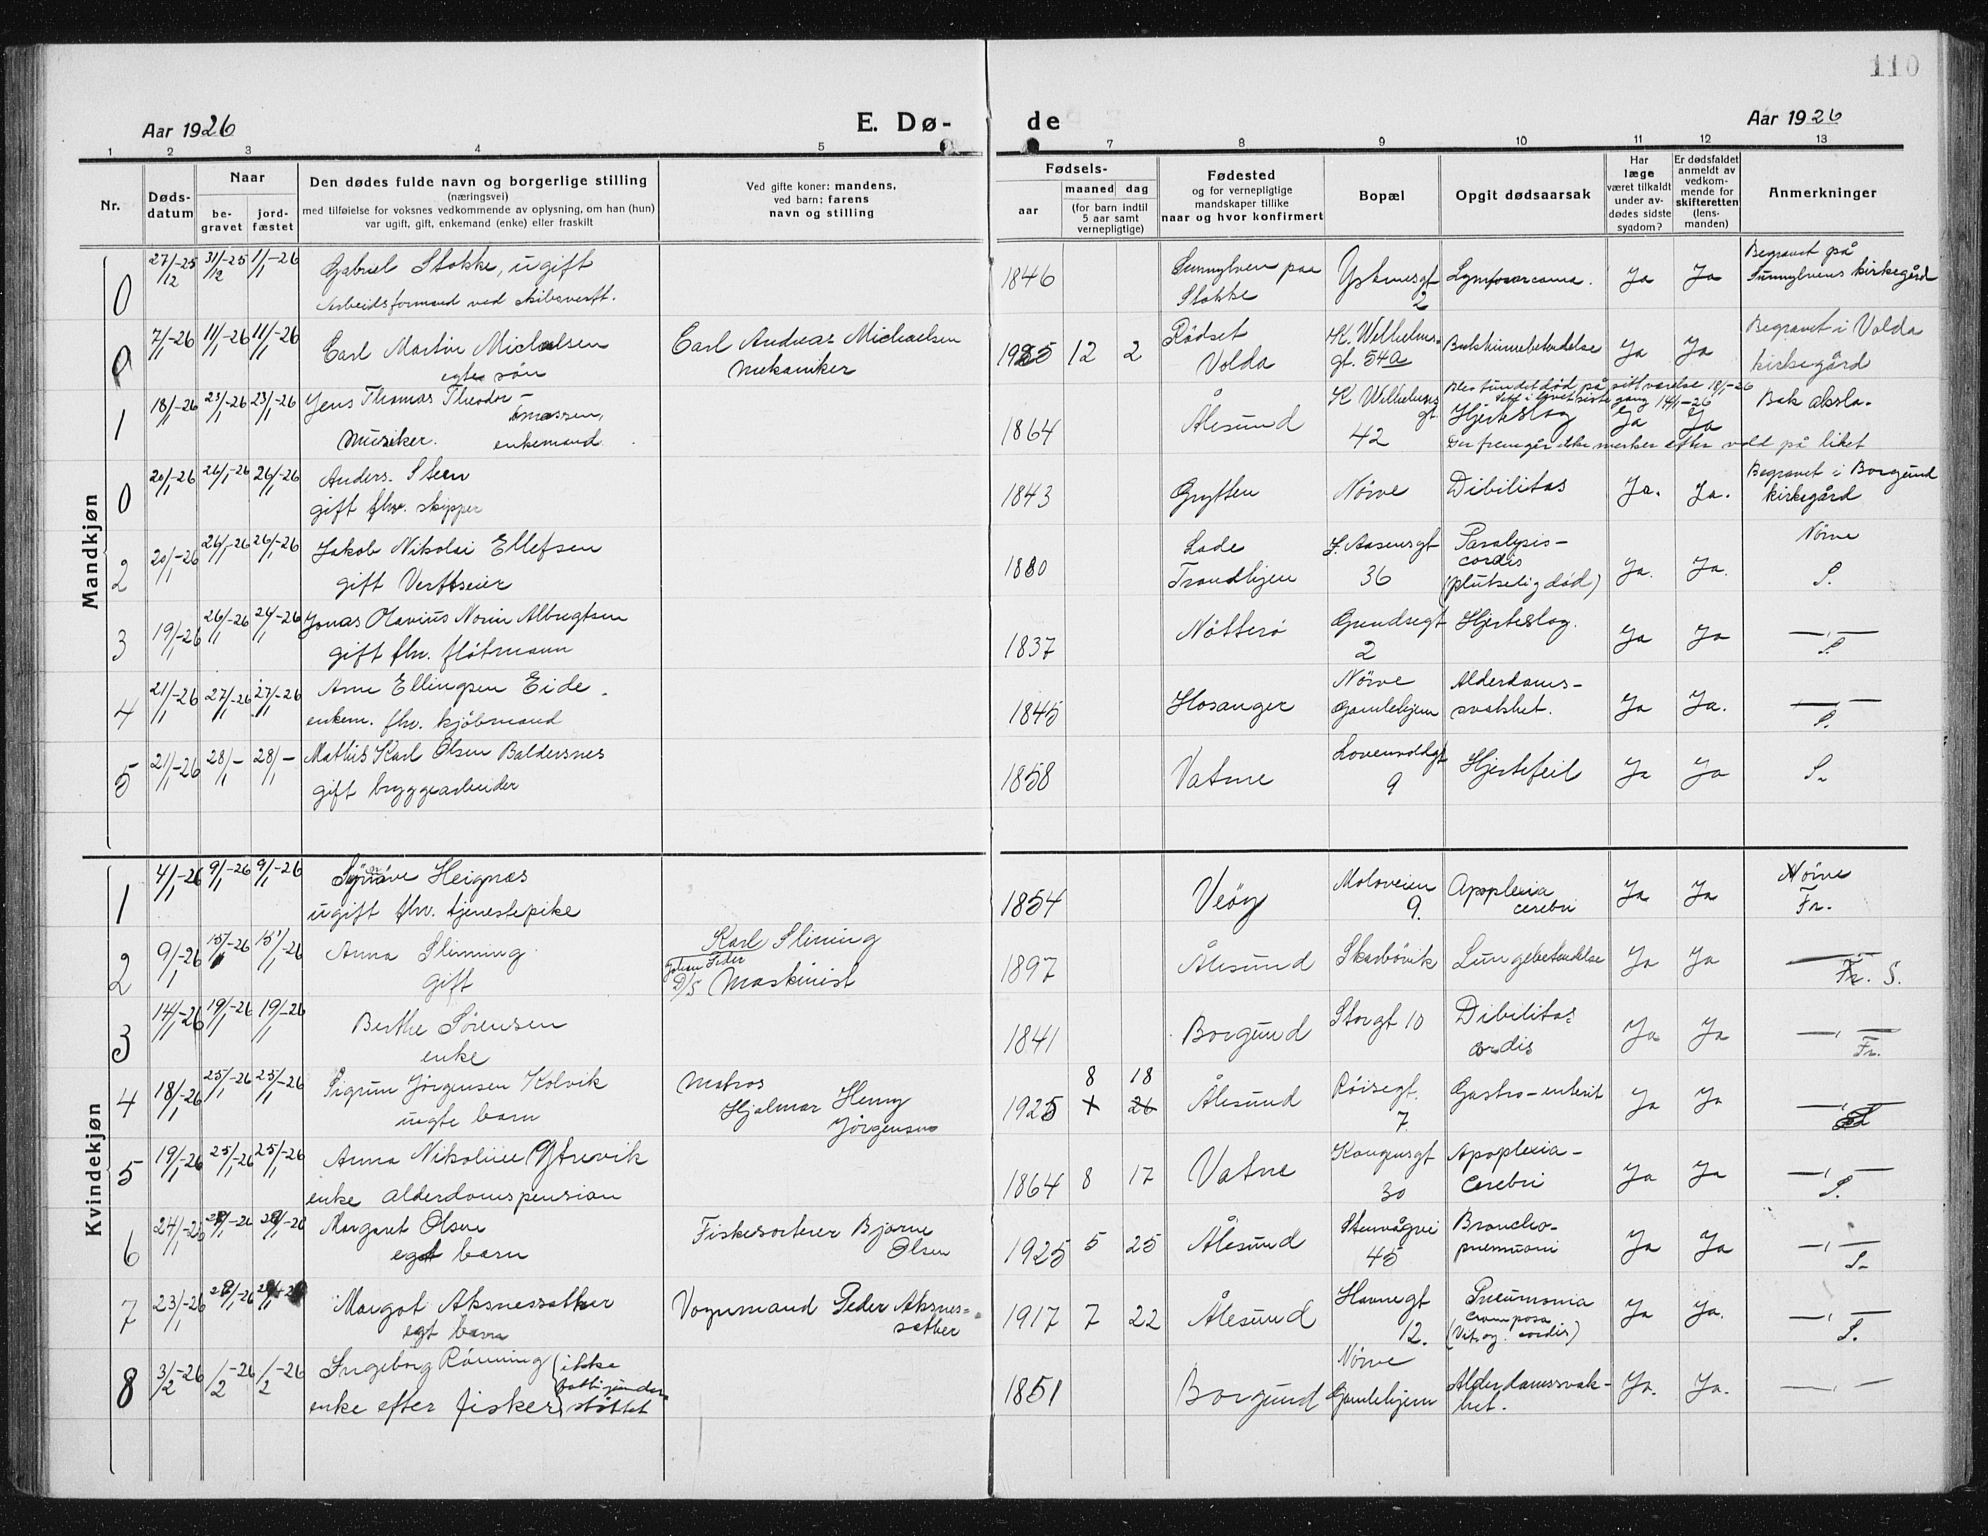 110
Aar 1926
E. Dø-
de
Aar 1926
1 2 3 4 5 7 8 9 10 11 12 13
Nr.
Døds-
datum
Naar
be-
gravet
jord-
fæstet
Den dødes fulde navn og borgerlige stilling
(næringsvei)
med tilføielse for voksnes vedkommende av oplysning, om han (hun)
var ugift, gift, enkemand (enke) eller fraskilt
Ved gifte koner: mandens,
ved barn: farens
navn og stilling
Fødsels-
aar
maaned
dag
(for barn indtil
5 aar samt
vernepligtige)
Fødested
og for vernepligtige
mandskaper tillike
naar og hvor konfirmert
Bopæl
Opgit dødsaarsak
Har
læge
været tilkaldt
under av-
dødes sidste
sygdom?
Er dødsfaldet
anmeldt av
vedkom-
mende for
skifteretten
(lens-
manden)
Anmerkninger
Mandkjøn
0 27/12-25 31/12-25 1/1-26 Gabriel Stokke, ugift 1846 Sunnylven paa Lymfosarcoma. Ja Ja Begravet på
Arbeidsformand ved skibsverft. Stokke 2 Sunnylvens kirkegård
0 7/1-26 11/1-26 11/1-26 Carl Martin Michalsen Carl Andreas Michaelsen 1925 12 2 Rødset K. Wilhelms- Ja Ja Begravet i Volda
egte søn Mekaniker Volda gt. 54a kirkegård
1 18/1-26 23/1-26 23/1-26 Jens Thomas Theodor- 1864 Ålesund K Wilhelms gt. Blev fundet død på sitt værelse 18/1-26 Bak aksla.
Musiker. enkemand 42 Hjerteslag Ja Ja
Der fremgår ikke merker efter vold på liket
0 20/1-26 26/1-26 26/1-26 Anders. Steen 1843 Grytten Nørve Dibilitas Ja. Ja. Begravet i Borgund
gift fhv. skipper kirkegård
2 20/1-26 26/1-26 26/1-26 Jakob Nikolai Ellefsen 1880 Lade I. Aasensgt Paralysis- Ja. Ja. Nørve
gift Verftseier Trondhjem 36 cordis S.
(plutselig død)
3 19/1-26 26/1-26 26/1-26 Jonas Olavius Norin Albregtsen 1837 Nøtterø Grundsegt Hjerteslag. Ja Ja —,—
gift fhv. fløtmann 2 S.
4 21/1-26 27/1-26 27/1-26 Arne Ellingsen Eide. 1845 Hosanger Nørve Alderdoms- Ja Ja. —,—
enkem. fhv. kjøbmand Gamlehjem svakhet. S.
5 21/1-26 28/1- 28/1- Mathis Karl Olsen Baldersnes 1858 Vatne Lovenvoldgt Hjertefeil Ja Ja S.
gift bryggearbeider 9
Kvindekjøn
1 4/1-26 9/1-26 9/1-26 Heignæs 1854 Veøy Moloveien Apoplexia Ja Ja Nørve
ugift fhv. tjenestepike 9. cerebri Fr.
2 9/1-26 15/1-26 15/1-26 Anna Slinning Karl Slinning 1897 Ålesund Skarbøvik Lungebetendelse Ja Ja —,—
gift Johan Peder D/S Maskinist Fr. S.
3 14/1-26 19/1-26 19/1-26 Berthe Sørensen 1841 Borgund Storgt 10 Dibilitas Ja Ja —,—
enke cordis Fr.
4 18/1-26 25/1-26 25/1-26 Sigrun Jørgensen Kolvik Matros 1925 8 18 Ålesund Røisegt. Gastro-enterit Ja Ja —,—
uegte barn Hjalmar Henry 26 7.
Jørgensen
5 19/1-26 25/1-26 25/1-26 Anna Nikoline Ytrevik 1864 8 17 Vatne Kongensgt Apoplexia- Ja Ja —,—
enke Alderdomspension 30 Cerebri S.
6 24/1-26 Margaret Olsen Fiskesorterer Bjarne 1925 5 25 Ålesund Stenvågvei Broncho- Ja Ja —,—
egt barn Olsen 45 pnemuoni S.
7 23/1-26 Margot Aksnessæther Vognmand Peder Aksnes- 1917 7 22 Ålesund Havnegt Pneumonia Ja Ja. —,—
egt barn sæther 12. crouposa S.
(Vit. og. cordis)
8 3/2-26 /2-26 /2-26 Ingeborg Rønning (ikke 1851 Borgund Nørve Alderdomssvak- Ja. Ja. —,—
enke efter fisker støttet Gamlehjem het.